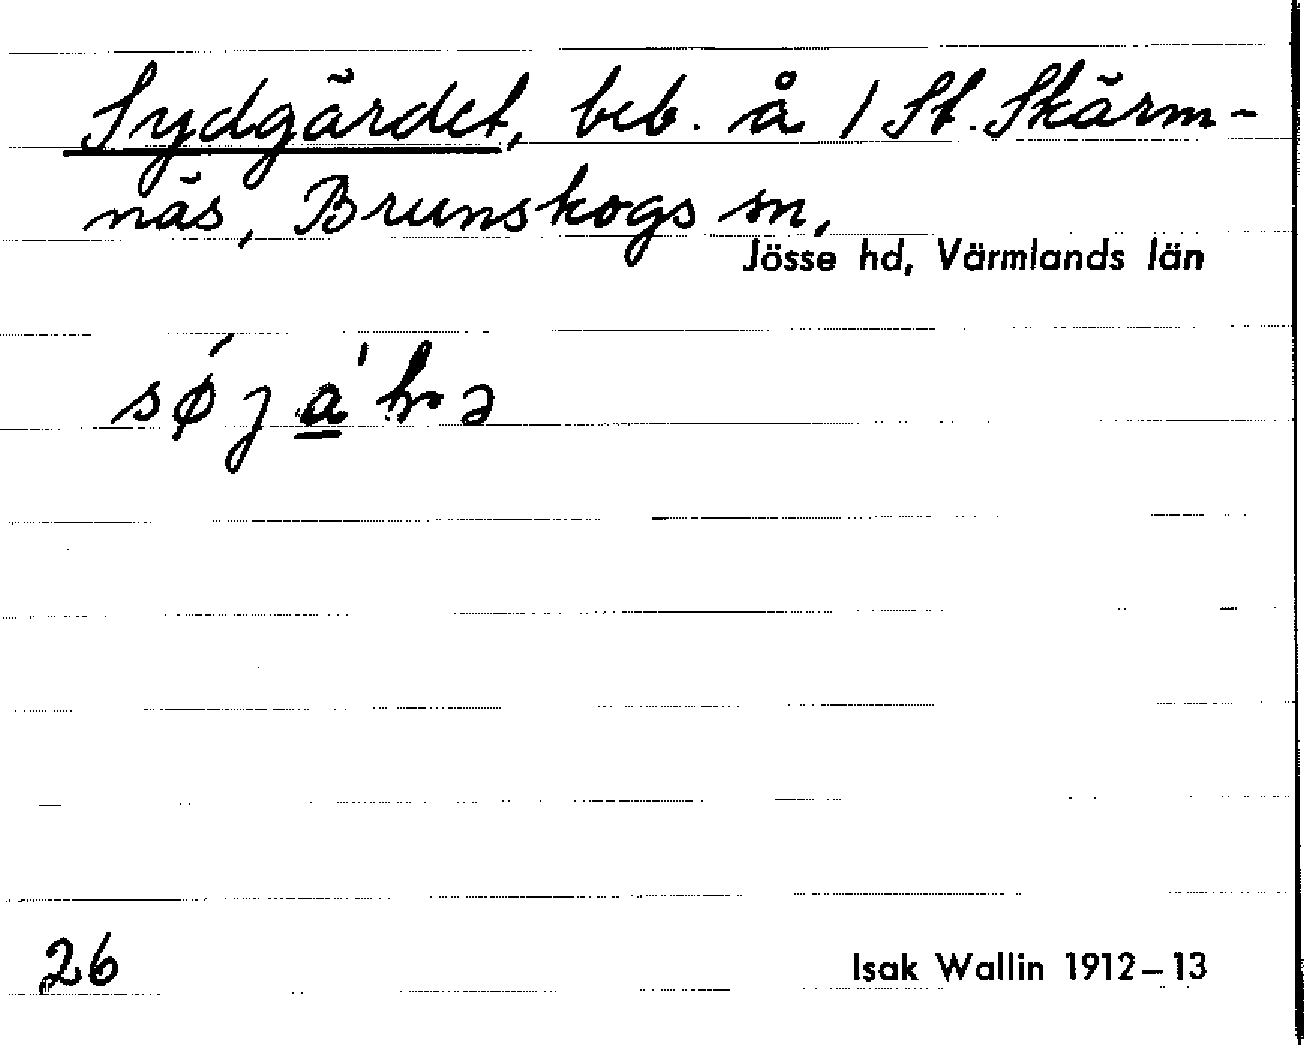 Sydgärdet, beb. å 1 St. Skärm-
näs, Brunskogs sn,
Jösse hd, Värmlands län
26
Isak Wallin 1912–13